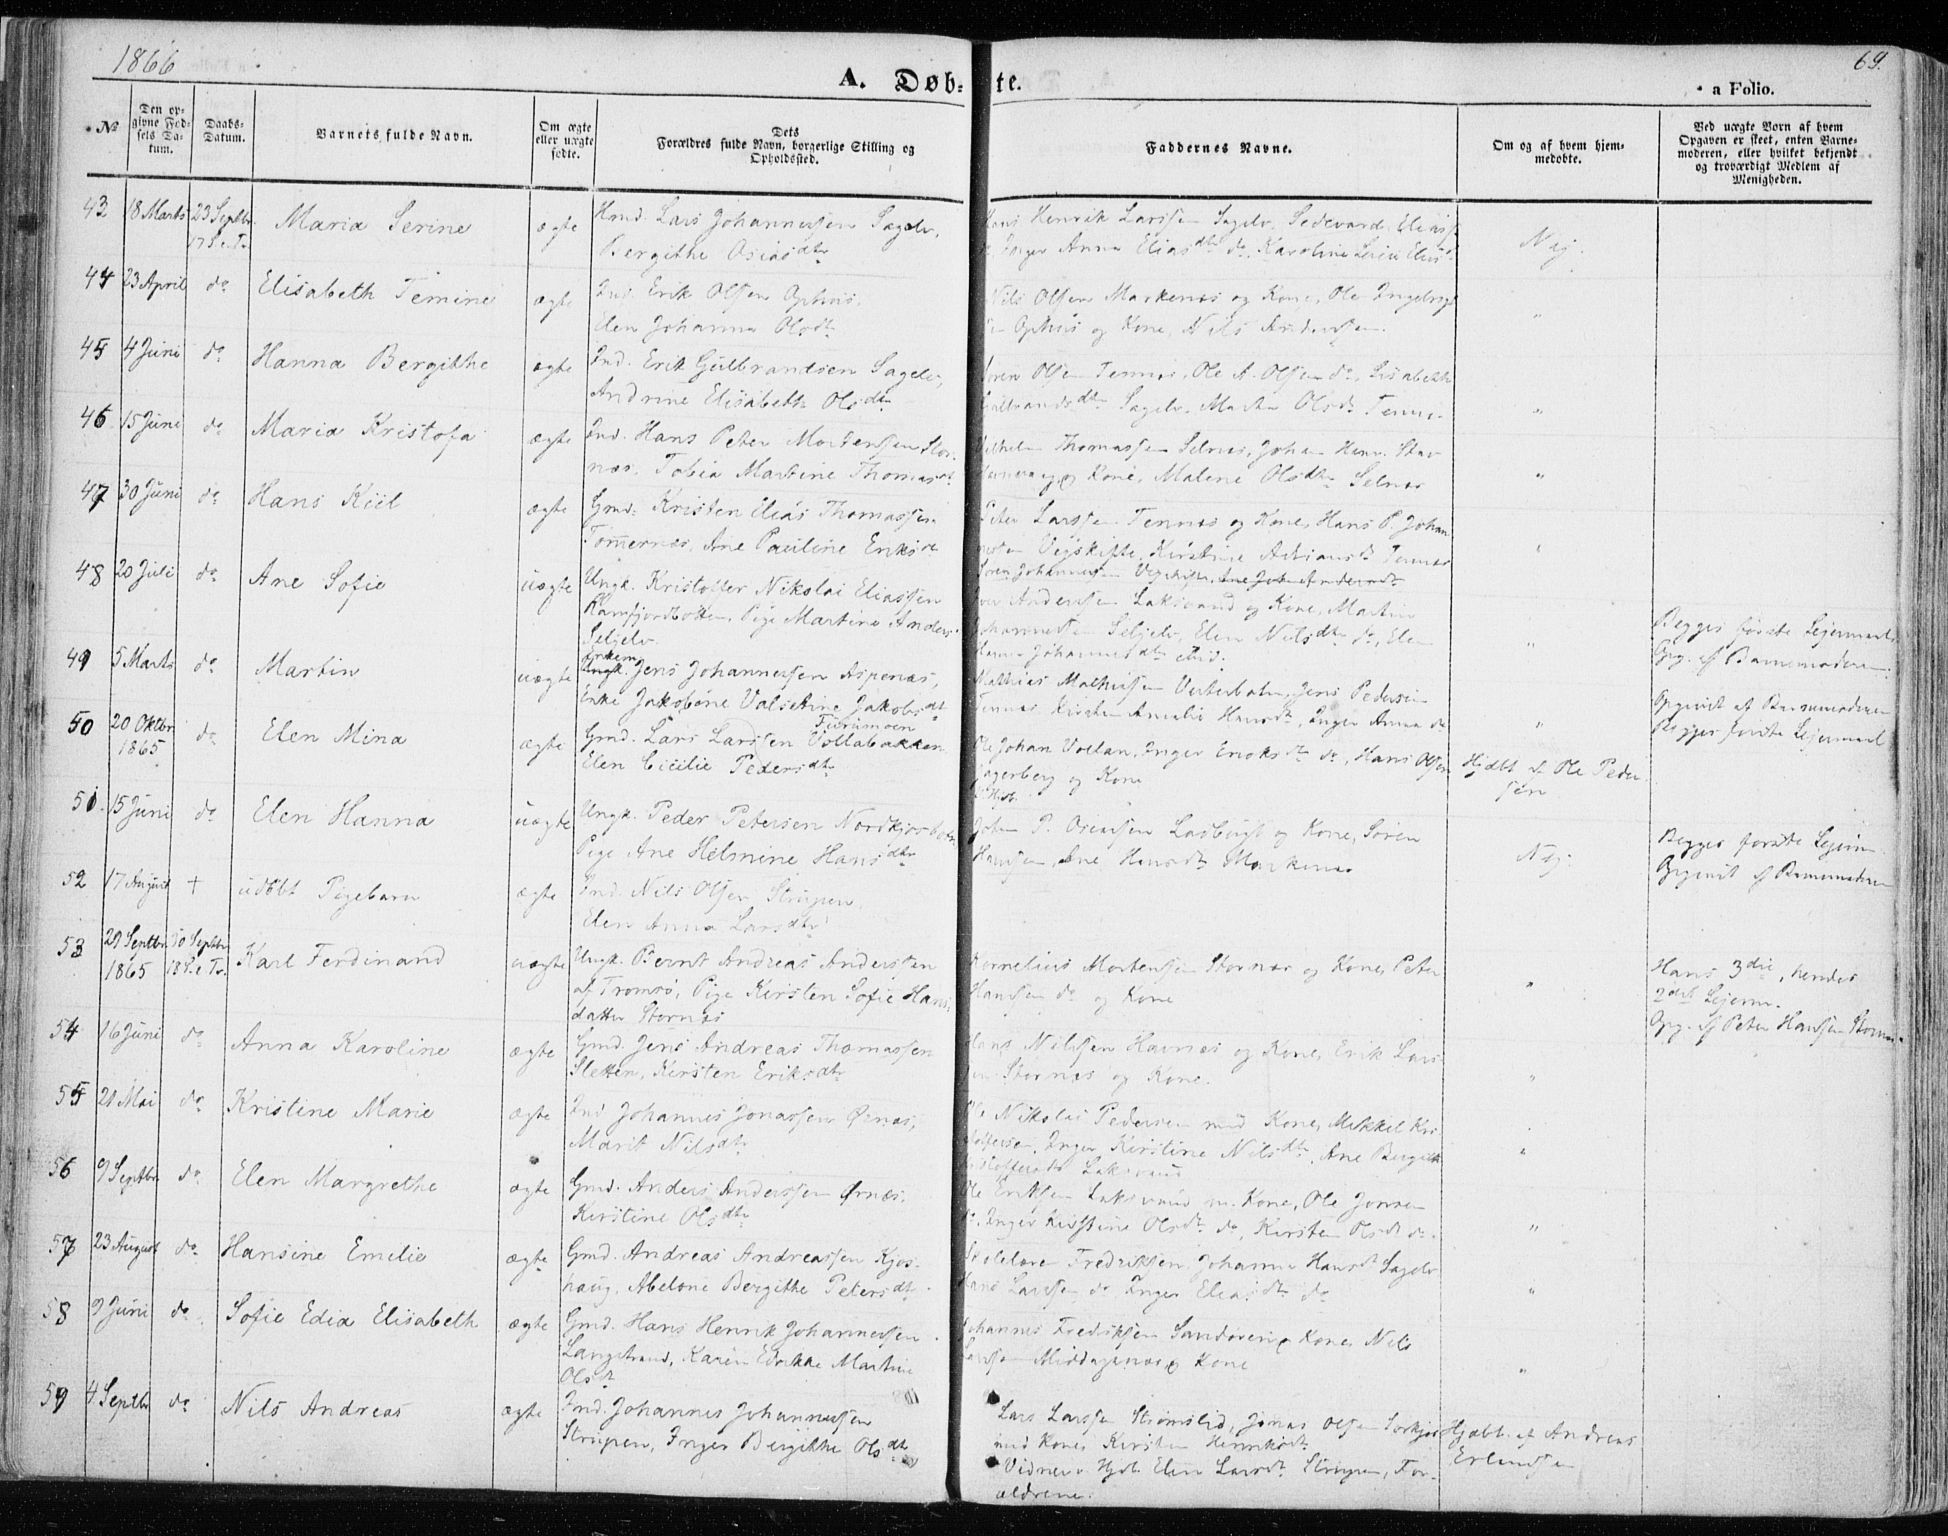 1866
69.
A. Døb-
te.
a Folio.
№
Den op-
givne Fød-
sels Da-
tum.
Daabs-
Datum.
Barnets fulde Navn.
Om ægte
eller uægte
fødte.
Dets
Forældres fulde Navn, borgerlige Stilling og
Opholdssted.
Faddernes Navne.
Om og af hvem hjem-
medøbte.
Ved uægte Børn af hvem
Opgaven er skeet, enten Barne-
moderen, eller hvilket bekjendt
og troværdigt Medlem af
Menigheden.
43 18 Marts 23 Septbr. Maria Serine ægte Hmd. Lars Johannessen Sagelv,
Bergithe Osiasdtr
Hans Henrik Larssen Sagelv, Sedevard Eliass
Inger Anna Eliasdtr do, Karoline
Nej.
44 23 April do Elisabeth Temine ægte Ind. Erik Olsen Ophus,
Elen Johanna Olsdtr
Nils Olsen Markenes og Kone, Ole Ingebrigt
sen Ophus og Kone, Nils Andersen.
"
45 4 Juni do Hanna Bergithe ægte Ind. Erik Gulbrandsen Sagelv,
Andrine Elisabeth Olsdtr
Søren Olsen Tennes, Ole A. Olsen do, Lisabeth
Gulbrandsdtr Sagelv, Martha Olsdtr Tennes
46 15 Juni do Maria Kristofa ægte Ind. Hans Peter Mortensen Stor-
næs, Tobia Martine Thomasdt
Vilhelm Thomassen Selnes, Johan Henr. Stor
og Kone, Malene Olsdtr Selnæs
"
47 30 Juni do Hans Kiil ægte Gmd. Kristen Elias Thomassen
Tømmernæs, Ane Pauline Eriksdt
Peter Larssen Tennes og Kone, Hans P. Johan
nesen Vegskifte, Kirstine Adriansdt Tennes
Søren Johannesen Vegskifte
48 20 Juli do Ane Sofie uægte Ungk. Kristoffer Nikolai Eliassen
Ramfjordbotten, Pige Martine Anders.
Seljelv
Andersen Laksvand og Kone, Martin
Johannesen Seljelv, Elen Nilsdtr do, Elen
Johannesdtr ibid.
"
Begges første Lejermaal
Opg. af Barnemoderen.
49 5 Marts do Martin uægte Enkem.
Ungk. Jens Johannessen Aspenæs,
Enke Jakobine Valentine Jakobsdt
Mathias Mathissen Vesterbotn, Jens Pedersen
Tennes, Kirsten Amalie Hansdt, Inger Anna do
"
Opgivet af Barnemoderen
Begges første Lejermaal
50 20 Oktbr
1865 do Elen Mina ægte Gmd. Lars Larssen Vollabakken
Furumoen
Elen Cicilie Pedersdtr
Ole Johan Vollan, Inger Enoksdt do, Hans Olsen
Fagerberg og Kone
Hjdbt af Ole Peder
sen
51 15 Juni do Elen Hanna uægte Ungk. Peder Petersen Nordkjosbotn
Pige Ane Helmine Hansdtr
Johan P. Osensen Ladbergt og Kone, Søren
Hansen, Ane Hansdt Markenes
Nej.
Begges første Lejerm.
Opgivet af Barnemoderen
52 17 August + udøbt Pigebarn ægte Ind. Nils Olsen Strupen,
Elen Anna Larsdtr
53 29 Septbr
1865 30 Septbr
18 S. e. Tr. Karl Ferdinand uægte Ungk. Bernt Andreas Anderssen
af Tromsø, Pige Kirsten Sofie Hans-
datter Stornes
Kornelius Mortensen Stornæs og Kone, Peter
Hansen do og Kone
"
Hans 3die, hendes
2det Lejerm.
Opg. af Peter Hansen Stornes.
54 16 Juni do Anna Karoline ægte Gmd. Jens Andreas Thomassen
Sletten, Kirsten Eriksdtr
Hans Nilssen Havnæs og Kone, Erik Lars-
sen Stornes og Kone.
"
55 21 Mai do Kristine Marie ægte Ind Johannes Jonassen Ørnæs,
Marit Nilsdtr
Ole Nikolai Pedersen med Kone, Mikkel Kri-
stoffersen, Inger Kirstine Nilsdtr, Ane Bergith
Kristoffersdtr Laksvand
"
56 9 Septbr do Elen Margrethe ægte Gmd. Anders Anderssen Ørnæs.
Kirstine Olsdtr
Ole Eriksen Laksvand m. Kone, Ole Jonsen
do, Inger Kirstine Olsdtr do, Kirsten Olsdt do.
"
57 23 August do Hansine Emilie ægte Gmd. Andreas Andreassen Kjos-
haug, Abelone Bergithe Petersdt.
Skolelærer Fredriksen, Johanna Hansdt Sagelv
Hans Larssen do Inger Eliasdt do
"
58 9 Juni do. Sofie Edia Elisabeth ægte Gmd. Hans Henrik Johannessen
Langstrand, Karen Edvikke Martine
Olsdt
Johannes Fredriksen Sandøren og Kone, Nils
Larssen Middagsnæs og Kone
"
59 4 Septbr do Nils Andreas ægte Ind. Johannes Johannessen
Strupen, Inger Bergithe Olsdt
Lars Larssen Strømslid, Jonas Olsen Sørkjos
med Kone, Kirsten Henriksdt
Vidner v. Hjdb. Elen Larsdt. Strupen, For-
ældrene.
Hjdbt. af Andreas
Erlandsen